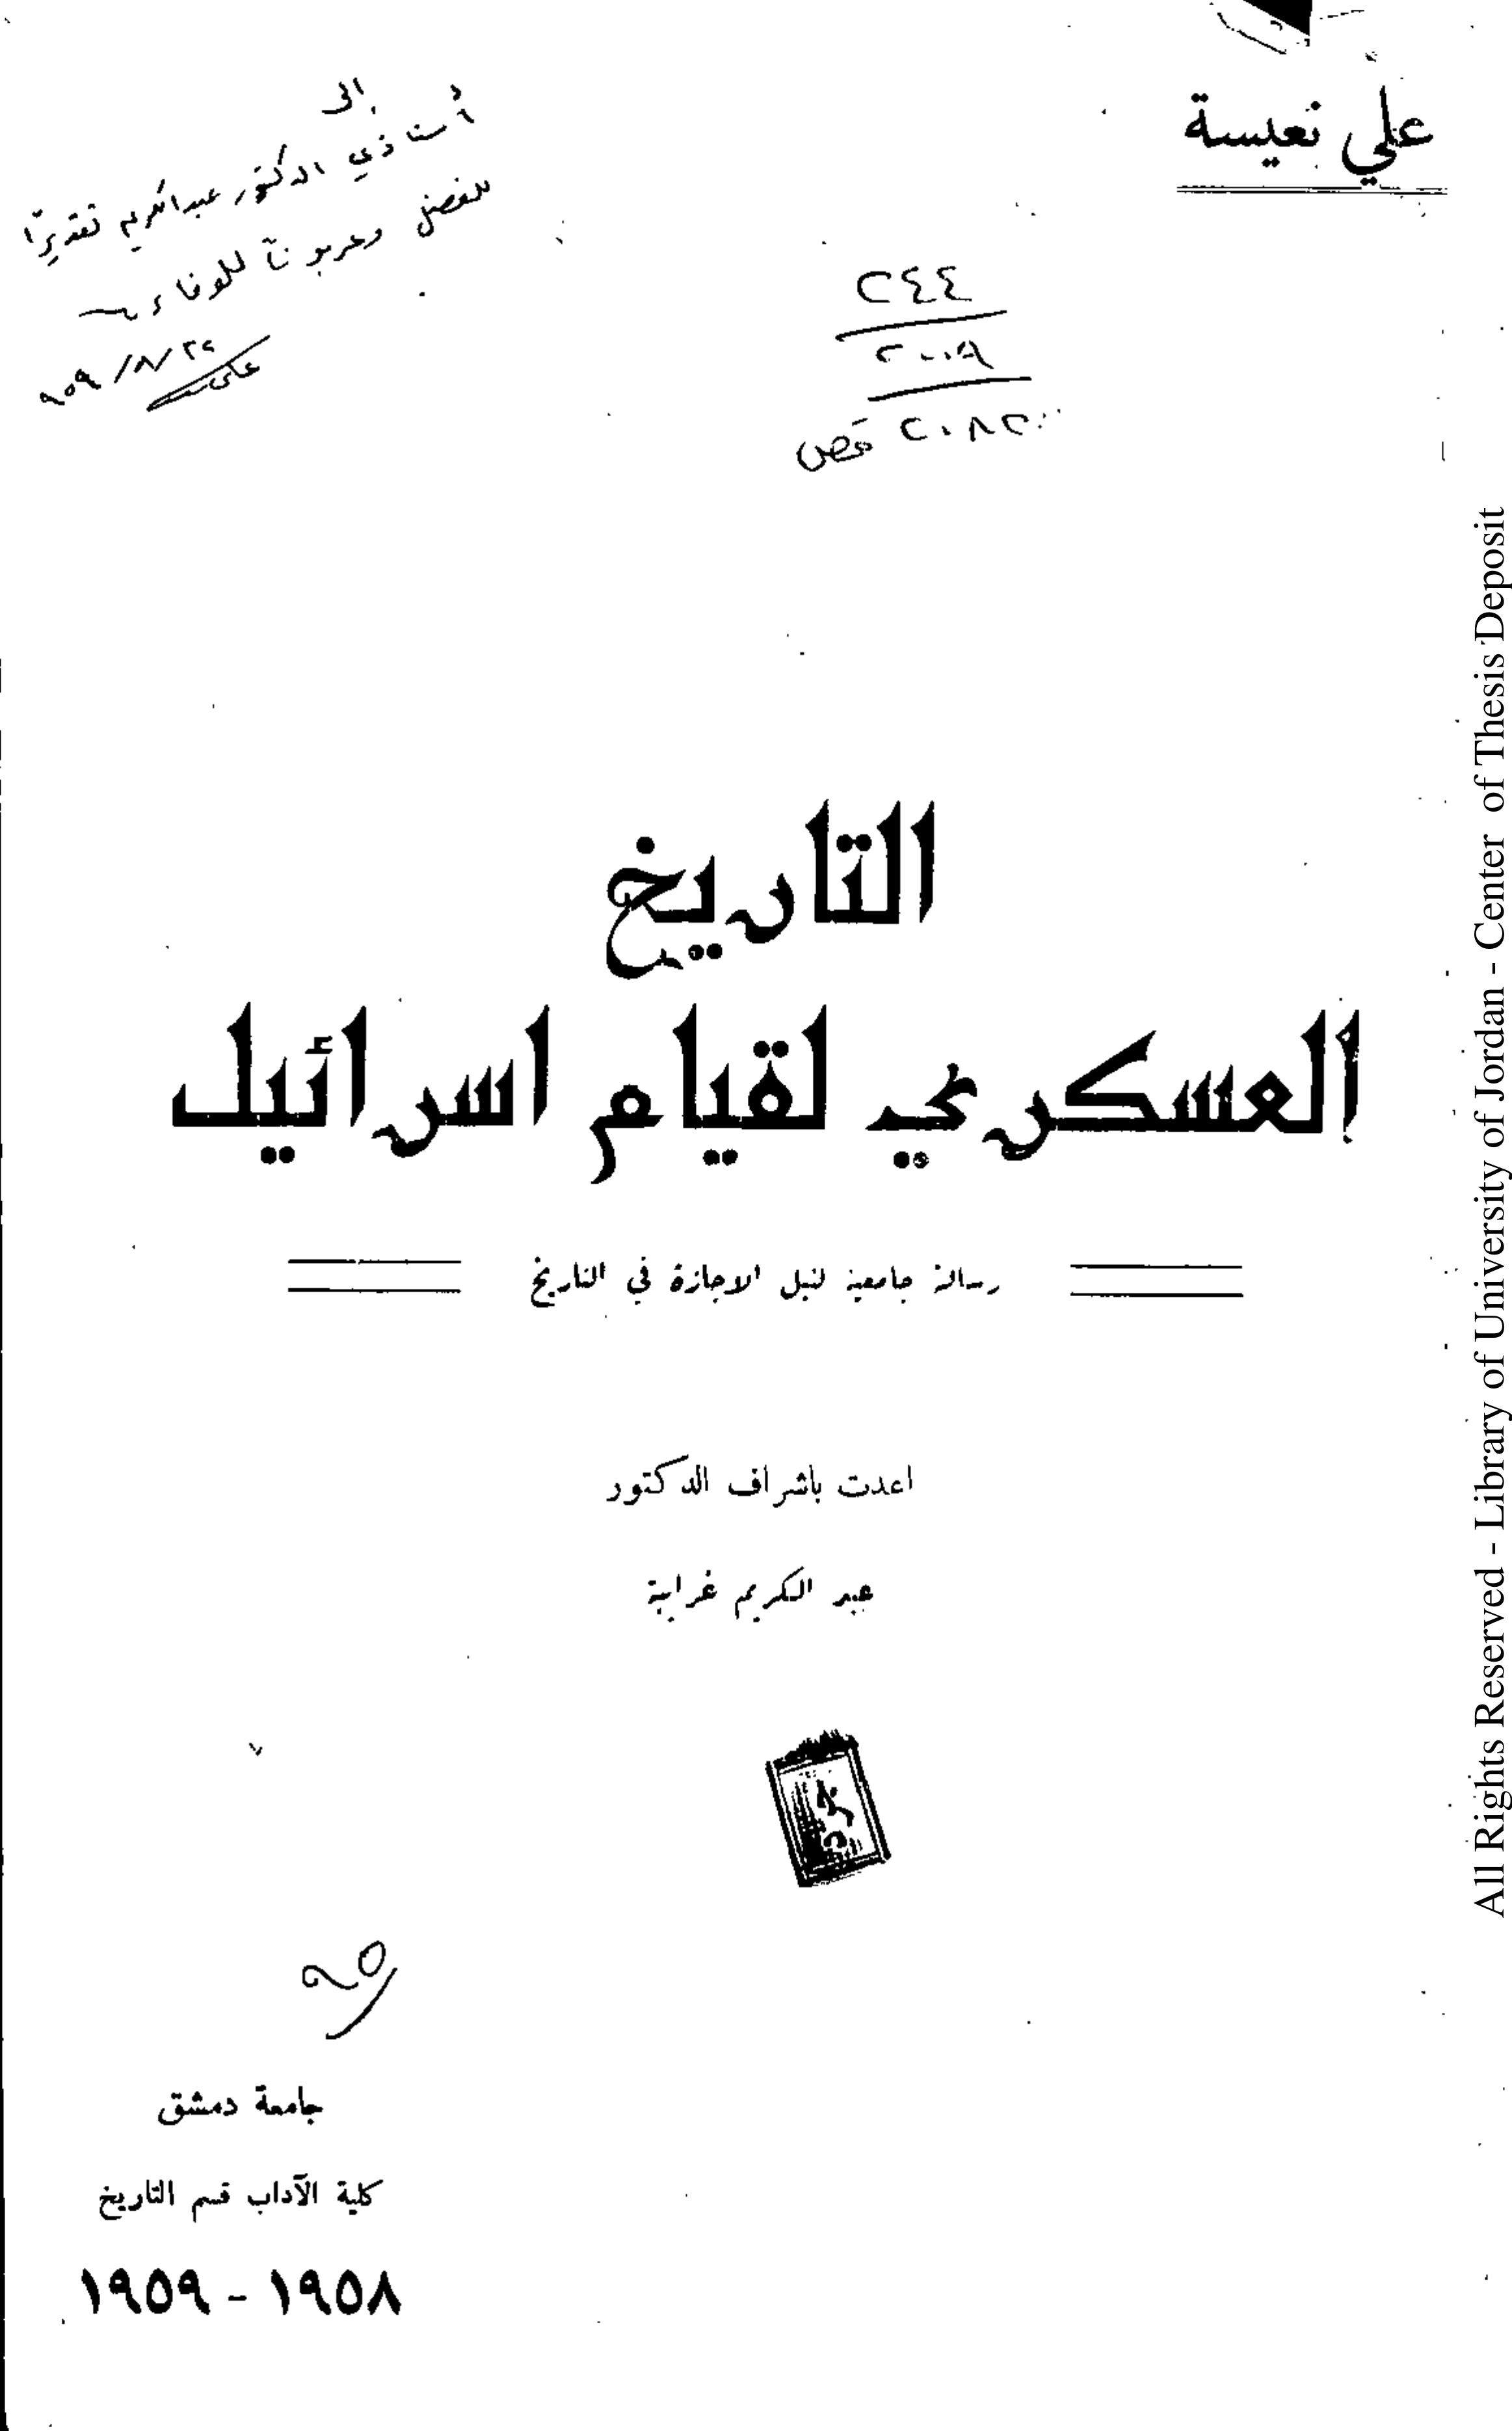 علي نعيسة
الى
أستاذي الدكتور عبدالكريم تقديرًا
للفضل وعربونًا للوفاء
علي
٩٥٩/٨/٢٢
٢٤٤
٢٠٠٨
التاريخ
العسكري لقيام اسرائيل
رسالة جامعية لنيل الاجازة في التاريخ
اعدت باشراف الدكتور
عبد الكريم غرايبة
جامعة دمشق
كلية الآداب قسم التاريخ
١٩٥٨ - ١٩٥٩
All Rights Reserved - Library of University of Jordan - Center of Thesis Deposit